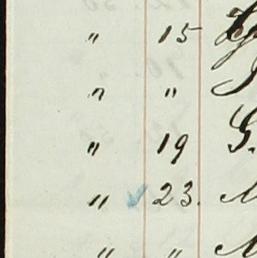 " 15
" "
" 19 G.
" 23.
" "